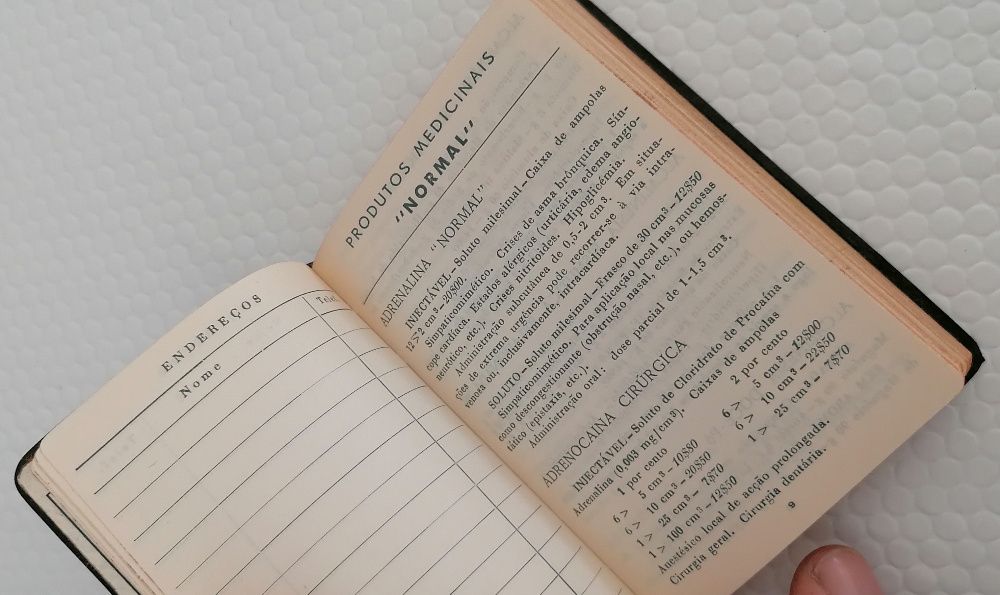 ENDEREÇOS
Nome
Tele
PRODUTOS MEDICINAIS
"NORMAL"
ADRENALINA "NORMAL"
INJECTÁVEL – Soluto milesimal – Caixa de ampolas
12 > 2 cm³ – 20$00.
Simpaticomimético. Crises de asma brônquica. Sín-
cope cardíaca. Estados alérgicos (urticária, edema angio-
neurótico, etc.). Crises nitritoides. Hipoglicémia.
Administração subcutânea de 0,5-2 cm³. Em situa-
ções de extrema urgência pode recorrer-se à via intra-
venosa ou, inclusivamente, intracardíaca.
SOLUTO – Soluto milesimal – Frasco de 30 cm³ – 12$50
Simpaticomimético. Para aplicação local nas mucosas
como descongestionante (obstrução nasal, etc.), ou hemos-
tático (epistaxis, etc.).
Administração oral: dose parcial de 1-1,5 cm³.
ADRENOCAÍNA CIRÚRGICA
INJECTÁVEL – Soluto de Cloridrato de Procaína com
Adrenalina (0,003 mg/cm³). Caixas de ampolas
1 por cento 2 por cento
6 > 5 cm³ – 10$80 6 > 5 cm³ – 12$00
6 > 10 cm³ – 20$50 6 > 10 cm³ – 22$50
1 > 25 cm³ – 7$70 1 > 25 cm³ – 7$70
1 > 100 cm³ – 12$50
Anestésico local de acção prolongada.
Cirurgia geral. Cirurgia dentária.
9